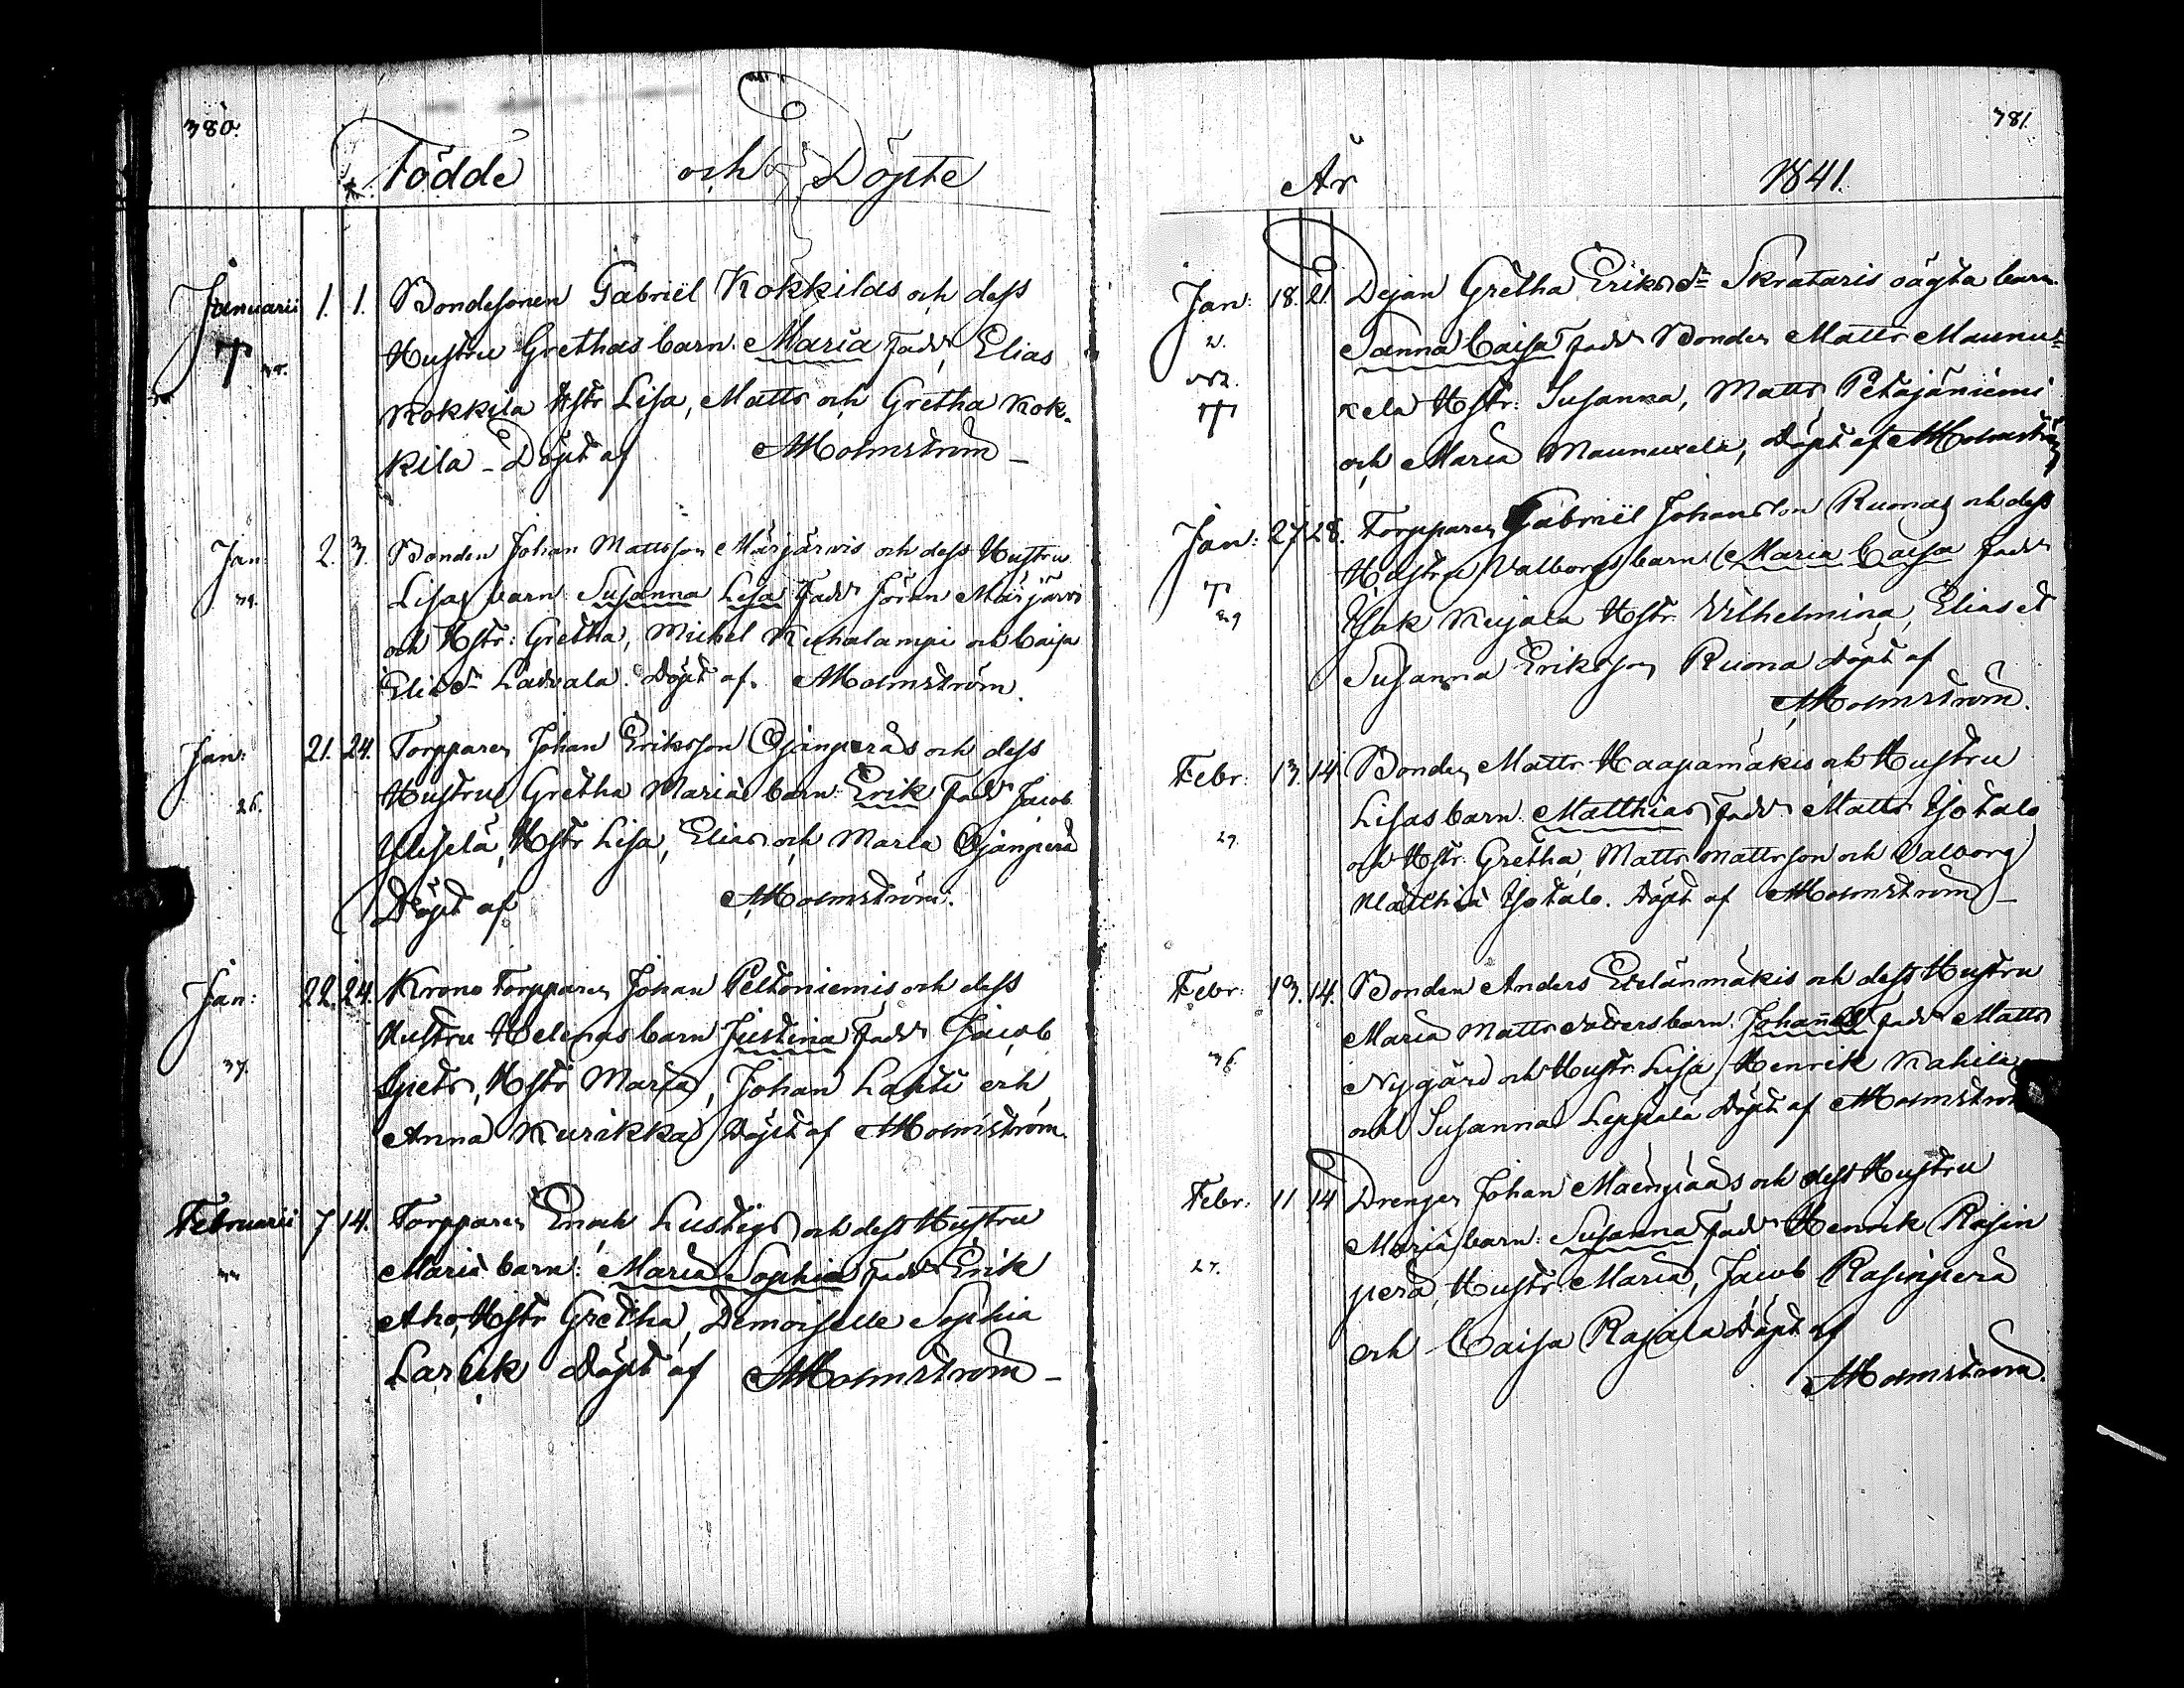 380.
Födde och Döpte
Januarii 1. 1. Bondesonen Gabriel Kokkilas och dess
Hustru Grethas barn. Maria Fadd. Elias
Kokkila Hstr Lisa, Matts och Gretha Kok-
kila – Döpt af Holmström –
Jan: 2. 3. Bonden Johan Mattsson Märjärvis och dess Hustru
Lisas barn Susanna Lisa Fadd Jöran Märjärvi
och Hstr: Gretha, Michel Kuhalampi och Caisa
Elisdr Ladvala. Döpt af Holmström.
Jan: 21. 24. Torpparen Johan Eriksson Ojanperäs och dess
26. Hustru Gretha Maria barn: Erik Fadd Jacob
Ylisela, Hstr Lisa, Elias och Maria Ojanperä
Döpt af Holmström.
Jan: 22. 24. Krono Torpparen Johan Peltoniemis och dess
Hustru Helenas barn Justina Fadd Jacob
37. Spets, Hstr Maria, Johan Lahti och
Anna Kurikka Döpt af Holmström.
Februarii 7 14. Torpparen Enoch Lustigs och dess Hustru
Maria barn: Maria Sophia Fadd Erik
Aho, Hstr Gretha, Demoiselle Sophia
Döpt af Holmström –
381.
År 1841.
Jan: 18. 21. Pejan Gretha Eriksdr Skrataris oägta barn
Sanna Caisa Fadd Bonden Matts Maunu-
kela Hstr: Susanna, Matts Petäjäniemi
och Maria Maunukela, Döpt af Holmström
Jan: 27. 28. Torpparen Gabriel Johansson Ruonas och dess
Hustru Valborgs barn Maria Caisa Fadd
29 Isak Kujala Hstr Vilhelmina, Elias et
Susanna Eriksson Ruona Döpt af
Holmström.
Febr: 13. 14 Bonden Matts Haapamäkis och Hustru
Lisas barn. Matthias Fadd Matts Yotalo
29. och Hstr: Gretha, Matts Mattsson och Valborg
Yotalo. Döpt af Holmström –
Febr: 13. 14. Bonden Anders Etelänmäkis och dess Hustru
Maria Mattsdotters barn. Johannes Fadd Matts
36. Nygård och Hustr Lisa Henrik Kahila
och Susanna Leppälä Döpt af Holmström
Febr: 11 14 Drengen Johan Mäenpääs och dess Hustru
Maria barn: Susanna Fadd Henrik Rasin
27. perä, Hustr Maria, Jacob Rasinperä
och Caisa Rajala Döpt af
Holmström.